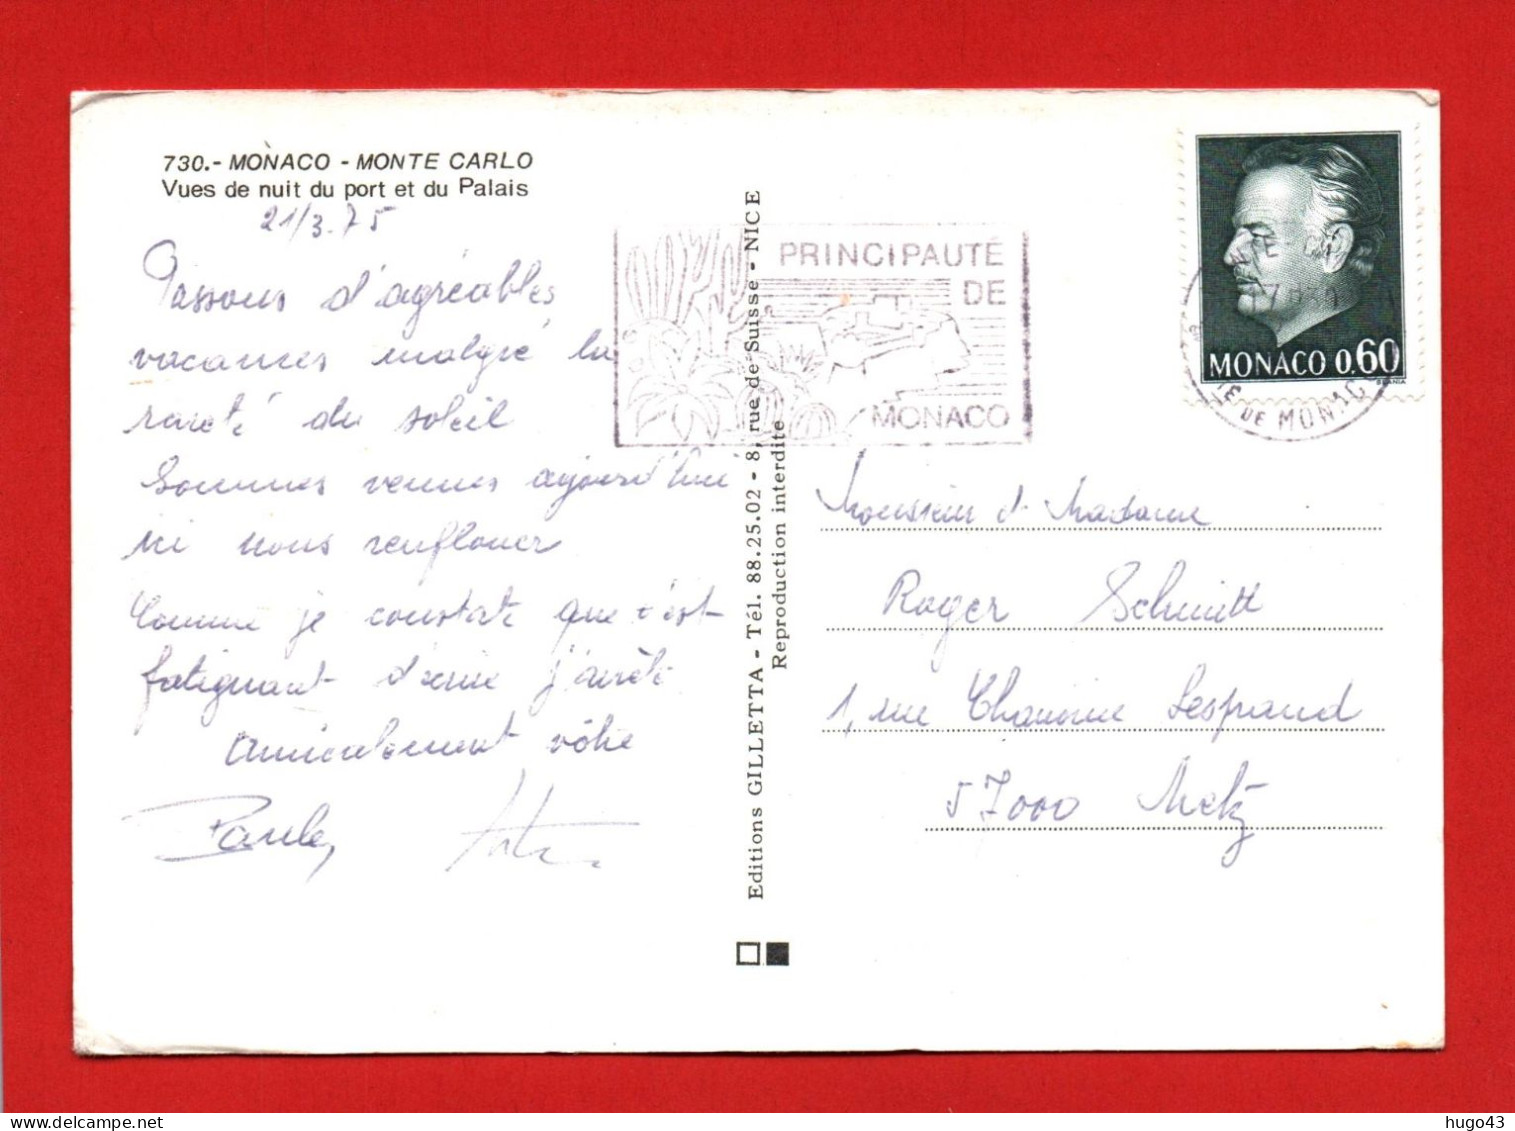 730.- MONACO - MONTE CARLO
Vues de nuit du port et du Palais
21/3.75
Passons d'agréables
vacances malgré la
rareté du soleil
Sommes venues aujourd'hui
ici nous renflouer
Comme je constate que c'est
fatigant d'écrire j'arrête
Amicalement vôtre
Paule,
PRINCIPAUTÉ
DE
MONACO
MONACO 0.60
TE DE MONAC
Editions GILLETTA - Tél. 88.25.02 - 8, rue de Suisse - NICE
Reproduction interdite
Monsieur et Madame
Roger Schmitt
1, rue Chanoine
57000 Metz
hugo43